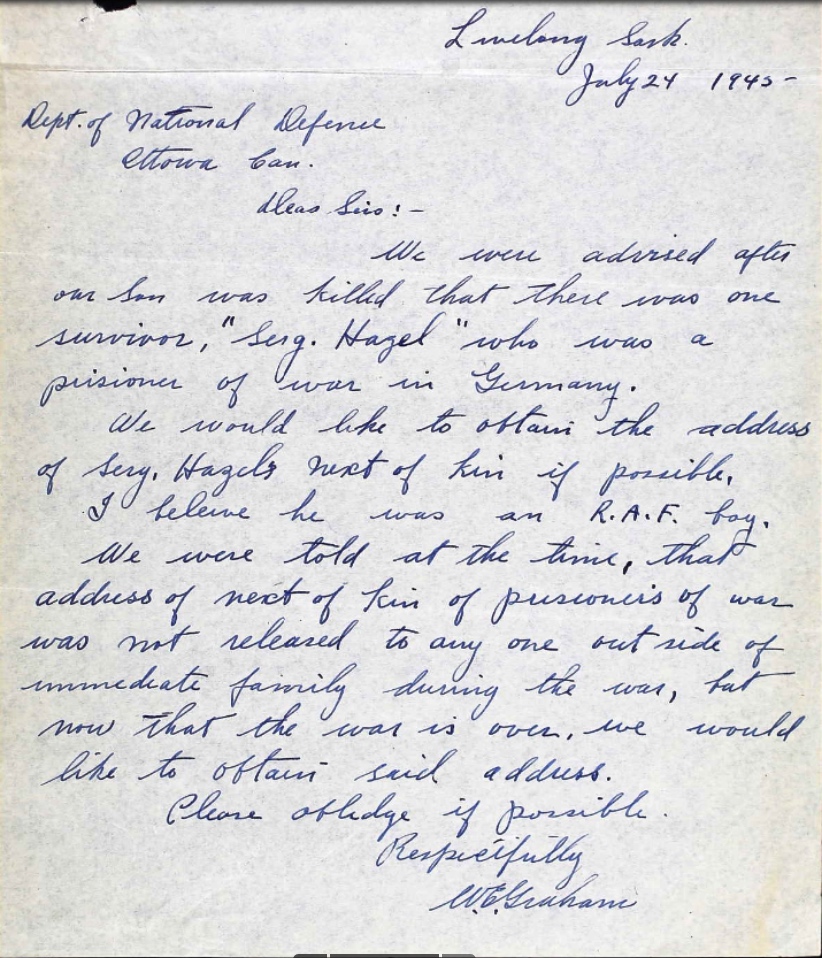 Livelong Sask.
July 24 1945-
Dept. of National Defence
Ottowa Can.
Dear Sirs:-
We were advised after
our Son was killed that there was one
survivor, "Serg. Hazel" who was a
prisioner of war in Germany.
We would like to obtain the address
of Serg. Hazels next of kin if possible.
I beleive he was an R.A.F. boy.
We were told at the time, that
address of next of kin of prisioners of war
was not released to any one out side of
immediate family during the war, but
now that the war is over, we would
like to obtain said address.
Please obledge if possible.
Respectfully
W.E. Graham